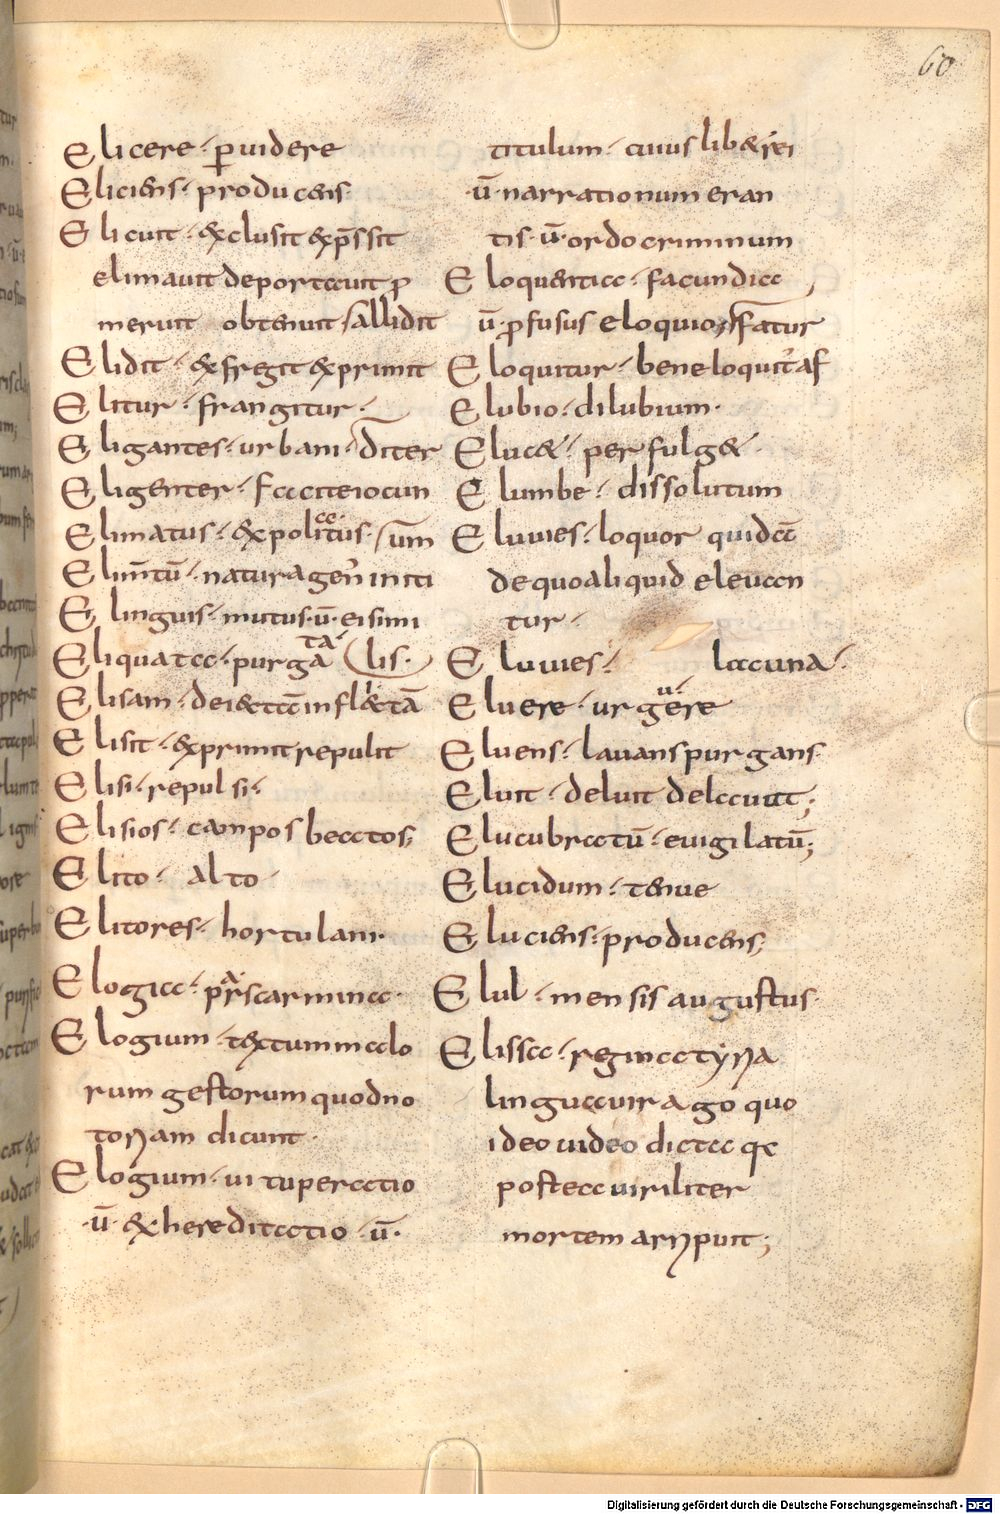 60
Elicere · ꝑuidere
Eliciens · producens
Elicuit · exclusit exp̄ssit
elimauit deportauit ꝓ
meruit obtenuit allidit
Elidit · exfregit exprimit
Elitur · frangitur ·
Eligantes · urbani · diter
Eligenter · facete iocun
Elimatus · expolitus · sum̄
Elim̄tū · natura gen̄ initi
Elinguis · mutus · ū · ei simi
Eliquata · purgata lis ·
Elisam · deiectā inflectā
Elisit · exprimit repulit
Elisi · repulsi ·
Elisios · campos beatos;
Elito · alto ·
Elitores · hortulani ·
Elogia · pars carminea ·
Elogium · textum malo
rum gestorum quod no
toriam dicunt ·
Elogium · uituperatio
· ū · exhereditatio · ū ·
titulum · cuius libet rei
· ū · narrationum eran
tis · ū · ordo criminum
Eloquentia · facundia
ū · ꝓfusus eloquio; fatur
Eloquitur · bene loquit᷑ af
Elubio · dilubium ·
Elucet · per fulget ·
Elumbe · dissolutum
Eluuies · loquor quidā
de quo aliquid eleuan
tur ·
Eluuies · lacuna ·
Eluere · urguere
Eluens · lauans purgans ·
Eluit · deluit delauat;
Elucubratū · euigilatū;
Elucidum · tenue
Eluciens · producens;
Elul · mensis augustus ·
Elissa · regina tyria
lingua uirago quo
ideo uideo dicta qc
postea uiriliter
mortem arripuit;
Digitalisierung gefördert durch die Deutsche Forschungsgemeinschaft - DFG